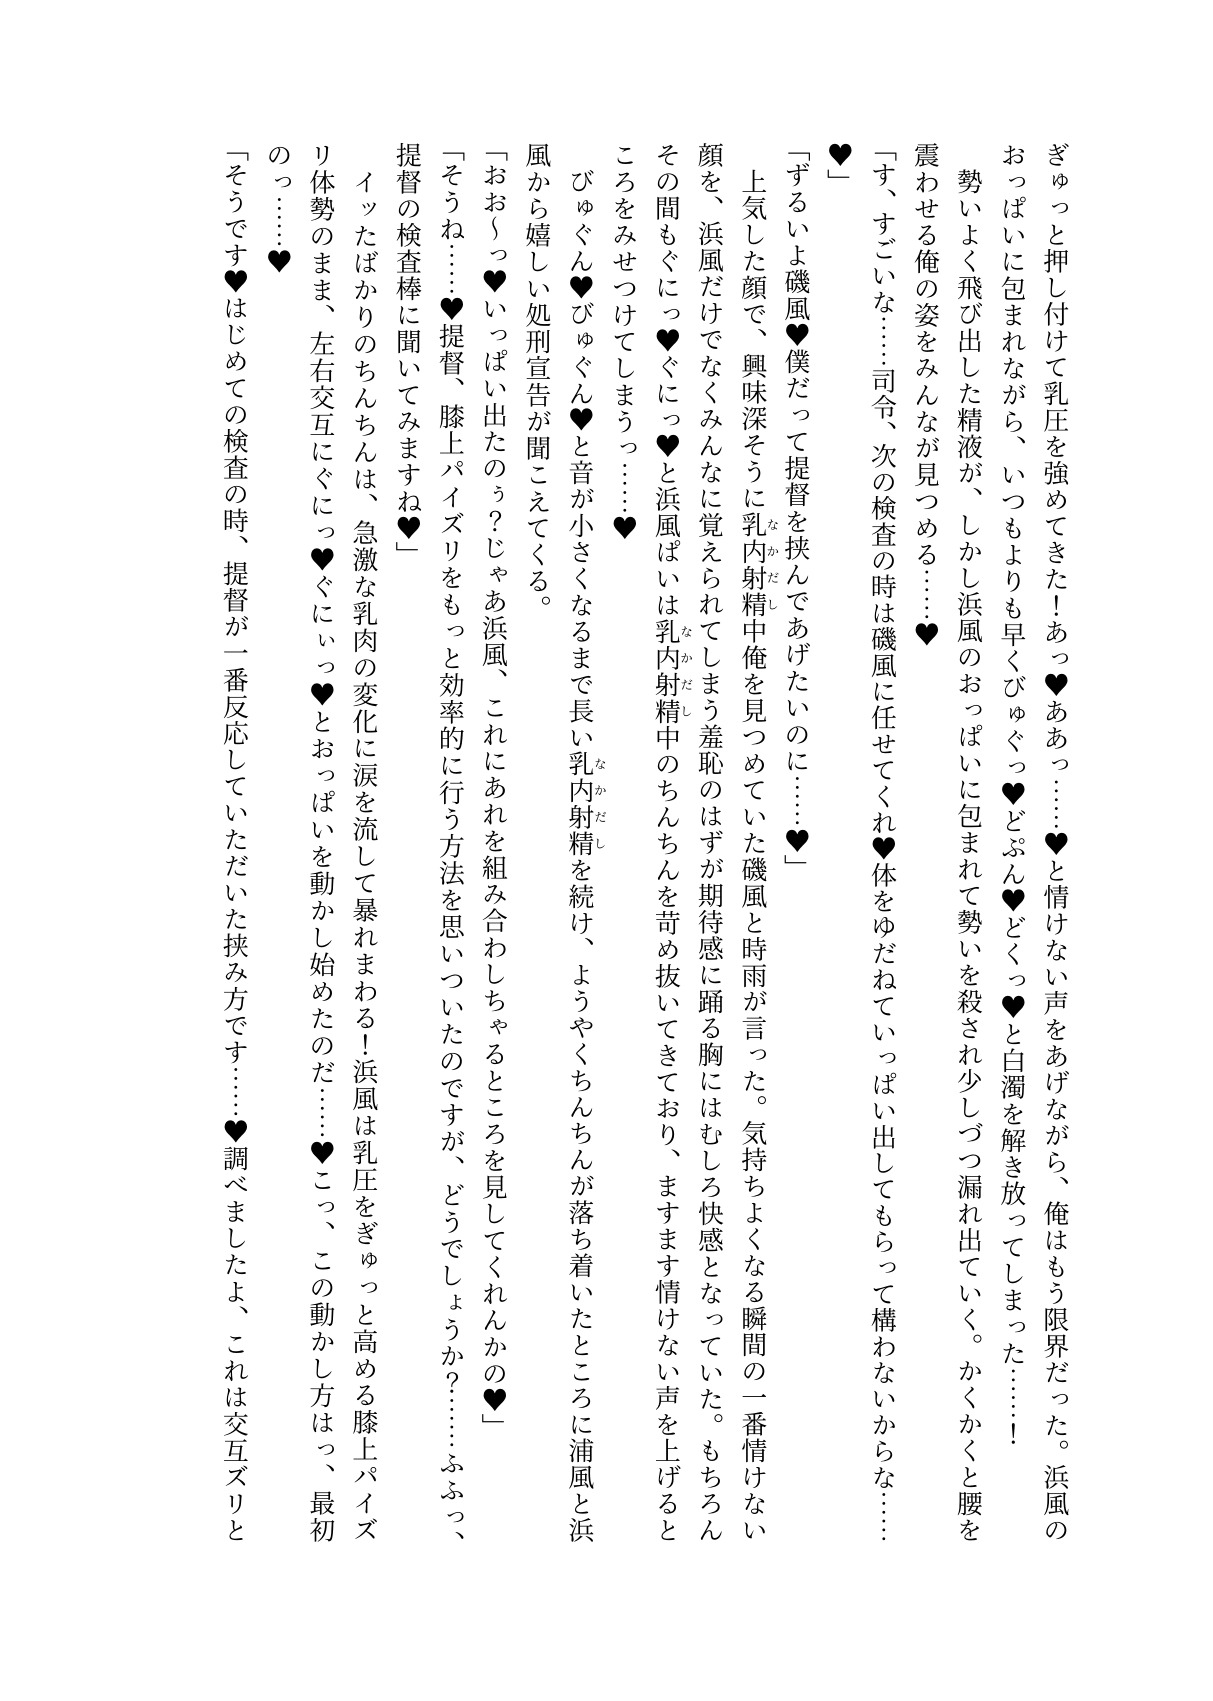 ぎゅっと押し付けて乳圧を強めてきた！あっ♥ああっ……♥と情けない声をあげながら、俺はもう限界だった。浜風の
おっぱいに包まれながら、いつもよりも早くびゅぐっ♥どぷん♥どくっ♥と白濁を解き放ってしまった……！
　勢いよく飛び出した精液が、しかし浜風のおっぱいに包まれて勢いを殺され少しづつ漏れ出ていく。かくかくと腰を
震わせる俺の姿をみんなが見つめる……♥
「す、すごいな……司令、次の検査の時は磯風に任せてくれ♥体をゆだねていっぱい出してもらって構わないからな……
♥」
「ずるいよ磯風♥僕だって提督を挟んであげたいのに……♥」
　上気した顔で、興味深そうに乳内射精中俺を見つめていた磯風と時雨が言った。気持ちよくなる瞬間の一番情けない
なかだし
顔を、浜風だけでなくみんなに覚えられてしまう羞恥のはずが期待感に踊る胸にはむしろ快感となっていた。もちろん
その間もぐにっ♥ぐにっ♥と浜風ぱいは乳内射精中のちんちんを苛め抜いてきており、ますます情けない声を上げると
なかだし
ころをみせつけてしまうっ……♥
　びゅぐん♥びゅぐん♥と音が小さくなるまで長い乳内射精を続け、ようやくちんちんが落ち着いたところに浦風と浜
なかだし
風から嬉しい処刑宣告が聞こえてくる。
「おお～っ♥いっぱい出たのぅ？じゃあ浜風、これにあれを組み合わしちゃるところを見してくれんかの♥」
「そうね……♥提督、膝上パイズリをもっと効率的に行う方法を思いついたのですが、どうでしょうか？……ふふっ、
提督の検査棒に聞いてみますね♥」
　イッたばかりのちんちんは、急激な乳肉の変化に涙を流して暴れまわる！浜風は乳圧をぎゅっと高める膝上パイズ
リ体勢のまま、左右交互にぐにっ♥ぐにぃっ♥とおっぱいを動かし始めたのだ……♥こっ、この動かし方はっ、最初
のっ……♥
「そうです♥はじめての検査の時、提督が一番反応していただいた挟み方です……♥調べましたよ、これは交互ズリと